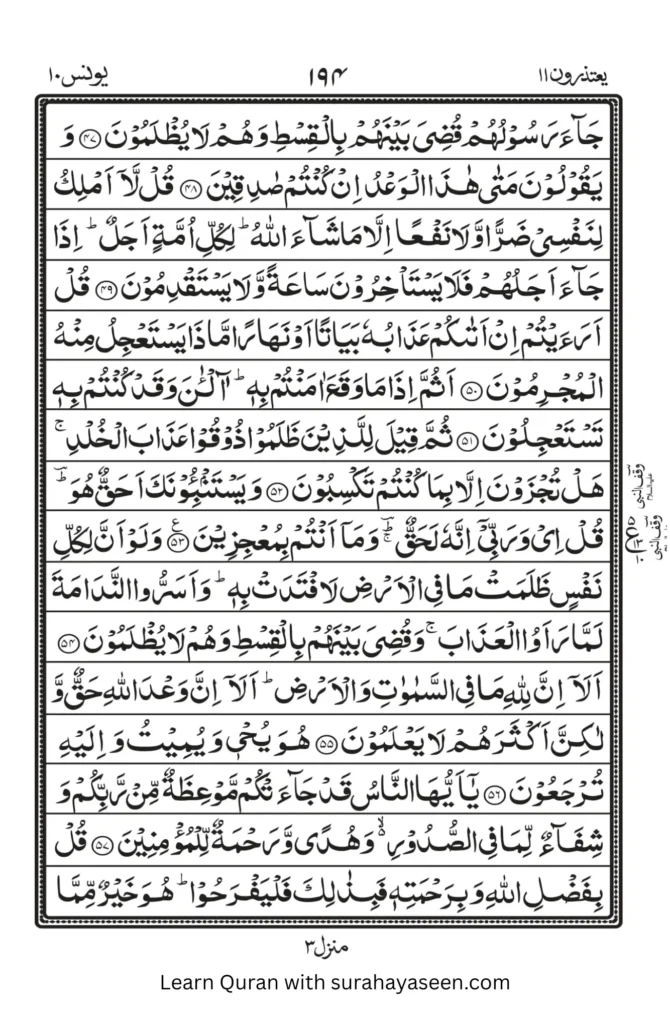 یعتذرون۱۱
۱۹۴
یونس۱۰
جَآءَ رَسُوْلُهُمْ قُضِیَ بَیْنَهُمْ بِالْقِسْطِ وَهُمْ لَا یُظْلَمُوْنَ ﴿۴۷﴾ وَ
یَقُوْلُوْنَ مَتٰی هٰذَا الْوَعْدُ اِنْ كُنْتُمْ صٰدِقِیْنَ ﴿۴۸﴾ قُلْ لَّاۤ اَمْلِكُ
لِنَفْسِیْ ضَرًّا وَّلَا نَفْعًا اِلَّا مَا شَآءَ اللّٰهُ ؕ لِكُلِّ اُمَّةٍ اَجَلٌ ؕ اِذَا
جَآءَ اَجَلُهُمْ فَلَا یَسْتَاْخِرُوْنَ سَاعَةً وَّلَا یَسْتَقْدِمُوْنَ ﴿۴۹﴾ قُلْ
اَرَءَیْتُمْ اِنْ اَتٰىكُمْ عَذَابُهٗ بَیَاتًا اَوْ نَهَارًا مَّاذَا یَسْتَعْجِلُ مِنْهُ
الْمُجْرِمُوْنَ ﴿۵۰﴾ اَثُمَّ اِذَا مَا وَقَعَ اٰمَنْتُمْ بِهٖ ؕ آٰلْـٰٔنَ وَقَدْ كُنْتُمْ بِهٖ
تَسْتَعْجِلُوْنَ ﴿۵۱﴾ ثُمَّ قِیْلَ لِلَّذِیْنَ ظَلَمُوْا ذُوْقُوْا عَذَابَ الْخُلْدِ ۚ
هَلْ تُجْزَوْنَ اِلَّا بِمَا كُنْتُمْ تَكْسِبُوْنَ ﴿۵۲﴾ وَیَسْتَنْۢبِـُٔوْنَكَ اَحَقٌّ هُوَ ؕ
قُلْ اِیْ وَرَبِّیْۤ اِنَّهٗ لَحَقٌّ ؕۚ وَمَاۤ اَنْتُمْ بِمُعْجِزِیْنَ ﴿۵۳﴾ وَلَوْ اَنَّ لِكُلِّ
نَفْسٍ ظَلَمَتْ مَا فِی الْاَرْضِ لَافْتَدَتْ بِهٖ ؕ وَاَسَرُّوا النَّدَامَةَ
لَمَّا رَاَوُا الْعَذَابَ ۚ وَقُضِیَ بَیْنَهُمْ بِالْقِسْطِ وَهُمْ لَا یُظْلَمُوْنَ ﴿۵۴﴾
اَلَاۤ اِنَّ لِلّٰهِ مَا فِی السَّمٰوٰتِ وَالْاَرْضِ ؕ اَلَاۤ اِنَّ وَعْدَ اللّٰهِ حَقٌّ وَّ
لٰكِنَّ اَكْثَرَهُمْ لَا یَعْلَمُوْنَ ﴿۵۵﴾ هُوَ یُحْیٖ وَیُمِیْتُ وَاِلَیْهِ
تُرْجَعُوْنَ ﴿۵۶﴾ یٰۤاَیُّهَا النَّاسُ قَدْ جَآءَتْكُمْ مَّوْعِظَةٌ مِّنْ رَّبِّكُمْ وَ
شِفَآءٌ لِّمَا فِی الصُّدُوْرِ ۙ۬ وَهُدًی وَّرَحْمَةٌ لِّلْمُؤْمِنِیْنَ ﴿۵۷﴾ قُلْ
بِفَضْلِ اللّٰهِ وَبِرَحْمَتِهٖ فَبِذٰلِكَ فَلْیَفْرَحُوْا ؕ هُوَ خَیْرٌ مِّمَّا
منزل۳
Learn Quran with surahayaseen.com